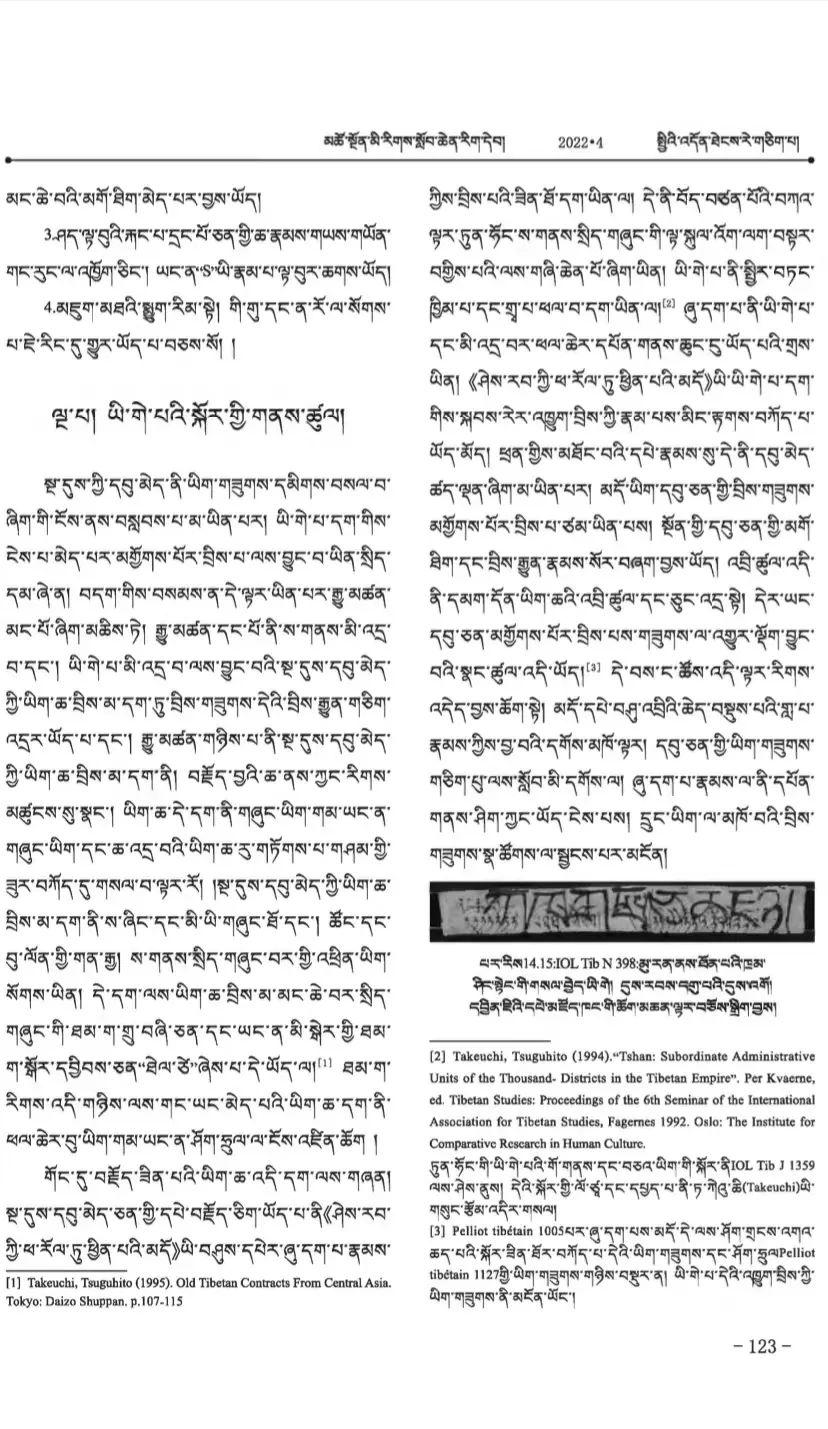 མཚོ་སྔོན་མི་རིགས་སློབ་ཆེན་རིག་དེབ། 2022•4 སྤྱིའི་འདོན་ཐེངས་རེ་གཅིག་པ།
མང་ཆེ་བའི་མགོ་ཐིག་མེད་པར་བྱས་ཡོད།
3.ཤད་ལྟ་བུའི་རྐང་པ་དྲང་པོ་ཅན་གྱི་ཆ་རྣམས་གཡས་གཡོན་
གང་རུང་ལ་འཁྱོག་ཅིང་། ཡང་ན་“S”ཡི་རྣམ་པ་ལྟ་བུར་ཆགས་ཡོད།
4.མཇུག་མཐའི་སྨྱུག་རིམ་སྟེ། གི་གུ་དང་ན་རོ་ལ་སོགས་
པ་ཇེ་རིང་དུ་གྱུར་ཡོད་པ་བཅས་སོ། །
ལྔ་པ། ཡི་གེ་པའི་སྐོར་གྱི་གནས་ཚུལ།
སྔ་དུས་ཀྱི་དབུ་མེད་ནི་ཡིག་གཟུགས་དམིགས་བསལ་བ་
ཞིག་གི་ངོས་ནས་བསླབས་པ་མ་ཡིན་པར། ཡི་གེ་པ་དག་གིས་
ངེས་པ་མེད་པར་མགྱོགས་པོར་བྲིས་པ་ལས་བྱུང་བ་ཡིན་སྲིད་
དམ་ཞེ་ན། བདག་གིས་བསམས་ན་དེ་ལྟར་ཡིན་པར་རྒྱུ་མཚན་
མང་པོ་ཞིག་མཆིས་ཏེ། རྒྱུ་མཚན་དང་པོ་ནི་ས་གནས་མི་འདྲ་
བ་དང་། ཡི་གེ་པ་མི་འདྲ་བ་ལས་བྱུང་བའི་སྔ་དུས་དབུ་མེད་
ཀྱི་ཡིག་ཆ་བྲིས་མ་དག་ཏུ་བྲིས་གཟུགས་དེའི་བྲིས་རྒྱུན་གཅིག་
འདྲར་ཡོད་པ་དང་། རྒྱུ་མཚན་གཉིས་པ་ནི་སྔ་དུས་དབུ་མེད་
ཀྱི་ཡིག་ཆ་བྲིས་མ་དག་ནི། བརྗོད་བྱའི་ཆ་ནས་ཀྱང་རིགས་
མཚུངས་སུ་སྣང་། ཡིག་ཆ་དེ་དག་ནི་གཞུང་ཡིག་གམ་ཡང་ན་
གཞུང་ཡིག་དང་ཆ་འདྲ་བའི་ཡིག་ཆ་རུ་གཏོགས་པ་གཤམ་གྱི་
ཟུར་བཀོད་དུ་གསལ་བ་ལྟར་རོ། །སྔ་དུས་དབུ་མེད་ཀྱི་ཡིག་ཆ་
བྲིས་མ་དག་ནི་ས་ཞིང་དང་མི་ཡི་གཞུང་ཐོ་དང་། ཚོང་དང་
བུ་ལོན་གྱི་གན་རྒྱ། ས་གནས་སྲིད་གཞུང་བར་གྱི་འཕྲིན་ཡིག་
སོགས་ཡིན། དེ་དག་ལས་ཡིག་ཆ་བྲིས་མ་མང་ཆེ་བར་སྲིད་
གཞུང་གི་ཐམ་ག་གྲུ་བཞི་ཅན་དང་ཡང་ན་མི་སྒེར་གྱི་ཐམ་
ག་སྒོར་དབྱིབས་ཅན་“ཐེལ་ཙེ”ཞེས་པ་དེ་ཡོད་ལ།[1] ཐམ་ག་
རིགས་འདི་གཉིས་ལས་གང་ཡང་མེད་པའི་ཡིག་ཆ་དག་ནི་
ཕལ་ཆེར་བུ་ཡིག་གམ་ཡང་ན་ཤོག་ཧྲུལ་ལ་ངོས་འཛིན་ཆོག །
གོང་དུ་བརྗོད་ཟིན་པའི་ཡིག་ཆ་འདི་དག་ལས་གཞན།
སྔ་དུས་དབུ་མེད་ཅན་གྱི་དཔེ་བརྗོད་ཅིག་ཡོད་པ་ནི《ཤེས་རབ་
ཀྱི་ཕ་རོལ་ཏུ་ཕྱིན་པའི་མདོ》ཡི་བཤུས་དཔེར་ཞུ་དག་པ་རྣམས་
[1] Takeuchi, Tsuguhito (1995). Old Tibetan Contracts From Central Asia.
Tokyo: Daizo Shuppan. p.107-115
ཀྱིས་བྲིས་པའི་ཟིན་ཐོ་དག་ཡིན་ལ། དེ་ནི་བོད་བཙན་པོའི་བཀའ་
ལྟར་ཏུན་ཧོང་ས་གནས་སྲིད་གཞུང་གི་ལྟ་སྐུལ་འོག་ལག་བསྟར་
བགྱིས་པའི་ལས་གཞི་ཆེན་པོ་ཞིག་ཡིན། ཡི་གེ་པ་ནི་སྤྱིར་བཏང་
ཁྱིམ་པ་དང་གྲྭ་པ་ཕལ་བ་དག་ཡིན་ལ།[2] ཞུ་དག་པ་ནི་ཡི་གེ་པ་
དང་མི་འདྲ་བར་ཕལ་ཆེར་དཔོན་གནས་ཆུང་ངུ་ཡོད་པའི་གྲས་
ཡིན། 《ཤེས་རབ་ཀྱི་ཕ་རོལ་ཏུ་ཕྱིན་པའི་མདོ》ཡི་ཡི་གེ་པ་དག་
གིས་སྐབས་རེར་འཁྱུག་བྲིས་ཀྱི་རྣམ་པས་མིང་རྟགས་བཀོད་པ་
ཡོད་མོད། ཕྲན་གྱིས་མཐོང་བའི་དཔེ་རྣམས་སུ་དེ་ནི་དབུ་མེད་
ཚད་ལྡན་ཞིག་མ་ཡིན་པར། མདོ་ཡིག་དབུ་ཅན་གྱི་བྲིས་གཟུགས་
མགྱོགས་པོར་བྲིས་པ་ཙམ་ཡིན་པས། སྔོན་གྱི་དབུ་ཅན་གྱི་མགོ་
ཐིག་དང་བྲིས་རྒྱུན་རྣམས་སོར་བཞག་བྱས་ཡོད། འབྲི་ཚུལ་འདི་
ནི་དམག་དོན་ཡིག་ཆའི་འབྲི་ཚུལ་དང་ཅུང་འདྲ་སྟེ། དེར་ཡང་
དབུ་ཅན་མགྱོགས་པོར་བྲིས་པས་གཟུགས་ལ་འགྱུར་ལྡོག་བྱུང་
བའི་སྣང་ཚུལ་འདི་ཡོད།[3] དེ་བས་ང་ཚོས་འདི་ལྟར་རིགས་
འདེད་བྱས་ཆོག་སྟེ། མདོ་དཔེ་བཤུ་འབྲིའི་ཆེད་བསྡུས་པའི་གླ་པ་
རྣམས་ཀྱིས་བྱ་བའི་དགོས་མཁོ་ལྟར། དབུ་ཅན་གྱི་ཡིག་གཟུགས་
གཅིག་པུ་ལས་སློབ་མི་དགོས་ལ། ཞུ་དག་པ་རྣམས་ལ་ནི་དཔོན་
གནས་ཤིག་ཀྱང་ཡོད་ངེས་པས། དྲུང་ཡིག་ལ་མཁོ་བའི་བྲིས་
གཟུགས་སྣ་ཚོགས་ལ་སྦྱངས་པར་མངོན།
པར་རིས14.15:IOL Tib N 398:མྱ་རན་ནས་ཐོན་པའི་ཁྲམ་
ཤིང་སྟེང་གི་གསལ་བྱེད་ཡི་གེ། དུས་རབས་དགུ་པའི་དུས་འགོ།
དབྱིན་ཇིའི་དཔེ་མཛོད་ཁང་གི་ཆོག་མཆན་ལྟར་བཅོས་སྒྲིག་བྱས།
[2] Takeuchi, Tsuguhito (1994).“Tshan: Subordinate Administrative
Units of the Thousand- Districts in the Tibetan Empire”. Per Kvaerne,
ed. Tibetan Studies: Proceedings of the 6th Seminar of the International
Association for Tibetan Studies, Fagernes 1992. Oslo: The Institute for
Comparative Research in Human Culture.
ཏུན་ཧོང་གི་ཡི་གེ་པའི་གོ་གནས་དང་བཅའ་ཡིག་གི་སྐོར་ནིIOL Tib J 1359
ལས་ཤེས་ནུས། དེའི་སྐོར་གྱི་ལོ་ཙཱ་དང་དཔྱད་པ་ནི་ཏ་ཀེའུ་ཆི(Takeuchi)ཡི་
གསུང་རྩོམ་འདིར་གསལ།
[3] Pelliot tibétain 1005པར་ཞུ་དག་པས་མདོ་དེ་ལས་ཤོག་གྲངས་འགའ་
ཆད་པའི་སྐོར་ཟིན་ཐོར་བཀོད་པ་དེའི་ཡིག་གཟུགས་དང་ཤོག་ཧྲུལPelliot
tibétain 1127གྱི་ཡིག་གཟུགས་གཉིས་བསྡུར་ན། ཡི་གེ་པ་དེའི་འཁྱུག་བྲིས་ཀྱི་
ཡིག་གཟུགས་ནི་མངོན་ཡོང་།
– 123 –